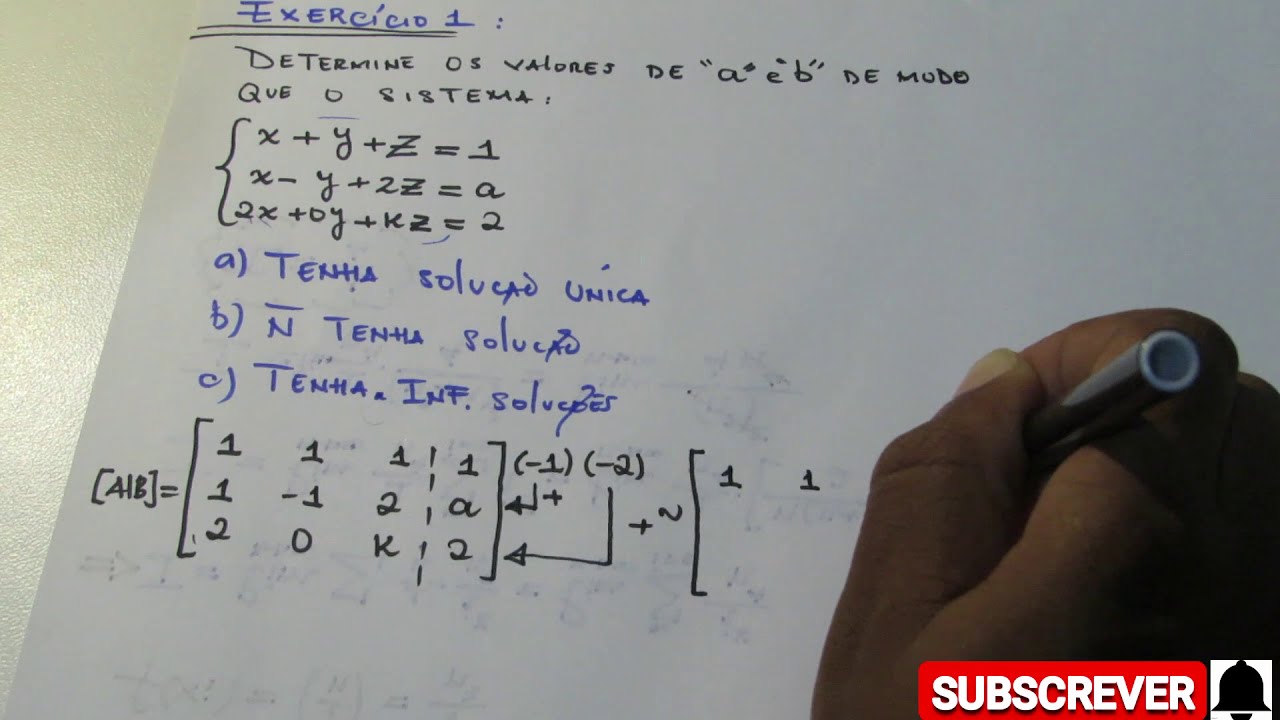 EXERCÍCIO 1 :
DETERMINE OS VALORES DE "a" e "b" DE MODO
QUE O SISTEMA:
x + y + z = 1
x - y + 2z = a
2x + 0y + kz = 2
a) TENHA SOLUÇÃO ÚNICA
b) N̄ TENHA SOLUÇÃO
c) TENHA INF. SOLUÇÕES
[A|B] = [ 1 1 1 | 1 ] (-1) (-2) [ 1 1
1 -1 2 | a ↵+ + ~
2 0 k | 2 ←
SUBSCREVER